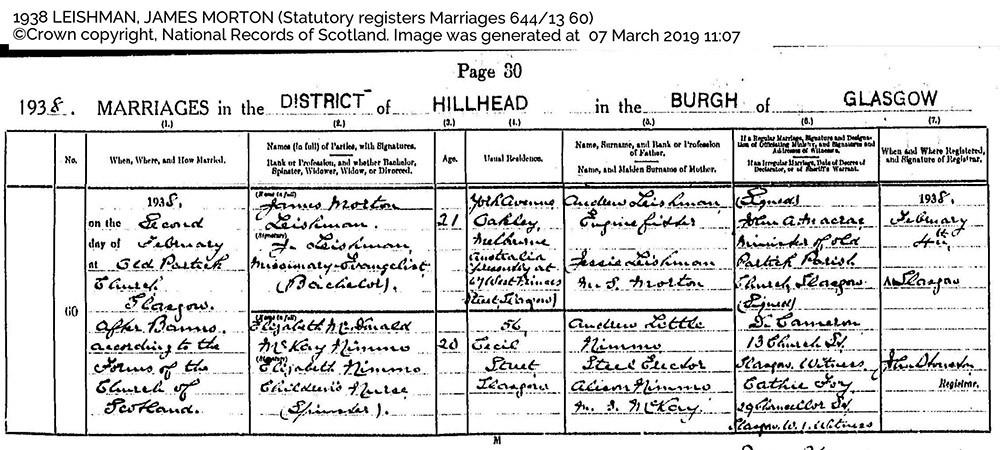 1938 LEISHMAN, JAMES MORTON (Statutory registers Marriages 644/13 60)
©Crown copyright, National Records of Scotland. Image was generated at 07 March 2019 11:07
Page 30
1938. MARRIAGES in the DISTRICT of HILLHEAD in the BURGH of GLASGOW
(1.) (2.) (3.) (4.) (5.) (6.) (7.)
No.
When, Where, and How Married.
Names (in full) of Parties, with Signatures.
Rank or Profession, and whether Bachelor,
Spinster, Widower, Widow, or Divorced.
Age.
Usual Residence.
Name, Surname, and Rank or Profession
of Father.
Name, and Maiden Surname of Mother.
If a Regular Marriage, Signature and Designa-
tion of Officiating Minister, and Signatures and
Addresses of Witnesses.
If an Irregular Marriage, Date of Decree of
Declarator, or of Sheriff's Warrant.
When and Where Registered,
and Signature of Registrar.
60
1938.
on the Second
day of February
at Old Partick
Church
Glasgow.
After Banns
according to the
Forms of the
Church of
Scotland.
(Name in full)
James Morton
Leishman.
(Signature)
J. Leishman,
Missionary-Evangelist
(Bachelor).
21
Avenue
Oakley
Melbourne
Australia
presently at
67 West Princes
Street, Glasgow)
Andrew Leishman,
Engine fitter
Jessie Leishman
m. S. Morton
(Signed)
John A. Macrae
Minister of Old
Partick Parish
Church, Glasgow
(Signed)
D. Cameron
13 Church St.
Glasgow. Witness
Cathie
29 Chancellor St.
Glasgow. W.1. Witness
1938.
February
4th
At Glasgow
Registrar.
(Name in full)
Elizabeth McDonald
McKay Nimmo
(Signature)
Elizabeth Nimmo
Children's Nurse
(Spinster).
20
56
Cecil
Street
Glasgow
Andrew Little
Nimmo
Steel Erector
Alison Nimmo
m. S. McKay.
M